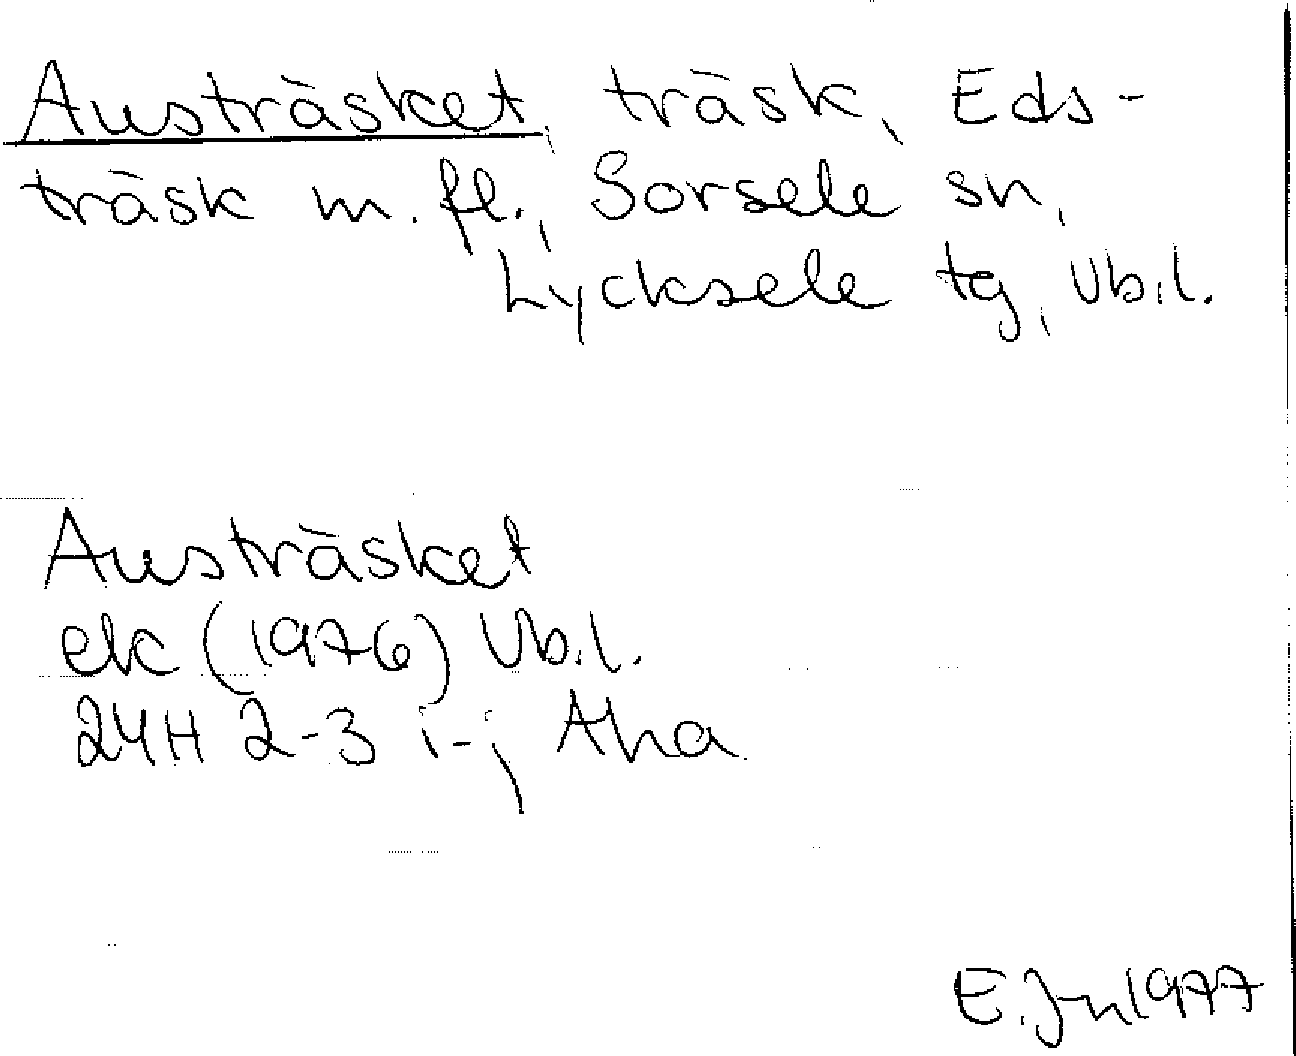 Austräsket, träsk, Eds-
träsk m. fl., Sorsele sn,
Lycksele tg, Vb.l.
Austräsket
ek (1976) Vb.l.
24H 2-3 i-j Aha
E. Jn 1977